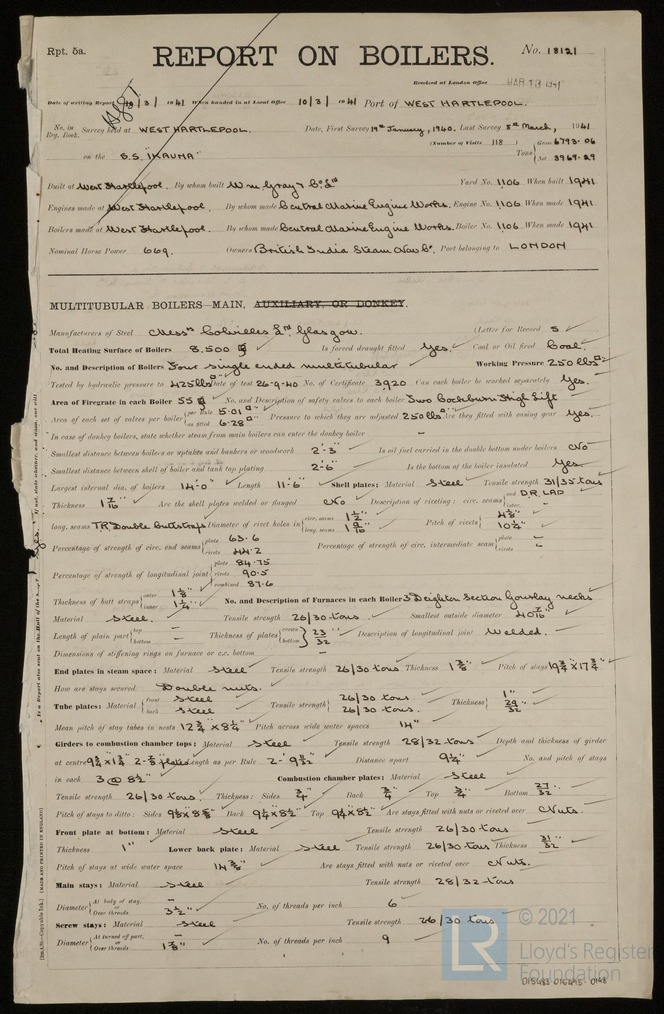 Rpt. 5a.
REPORT ON BOILERS.
No. 18121
Received at London Office MAR 13 1941
Date of writing Report 10/3/1941 When handed in at Local Office 10/3/1941 Port of WEST HARTLEPOOL.
No. in Reg. Book. Survey held at WEST HARTLEPOOL. Date, First Survey 19th January, 1940. Last Survey 8th March, 1941
(Number of Visits 118)
on the S.S. "IKAUNA" Tons { Gross 6793.06 Net 3969.29
Built at West Hartlepool. By whom built Wm Gray & Co Ld Yard No. 1106 When built 1941
Engines made at West Hartlepool. By whom made Central Marine Engine Works. Engine No. 1106 When made 1941
Boilers made at West Hartlepool. By whom made Central Marine Engine Works. Boiler No. 1106 When made 1941
Nominal Horse Power 669. Owners British India Steam Nav Co. Port belonging to LONDON
MULTITUBULAR BOILERS—MAIN, AUXILIARY, OR DONKEY.
Manufacturers of Steel Messrs Colvilles Ltd Glasgow. (Letter for Record S
Total Heating Surface of Boilers 8,500 Is forced draught fitted Yes. Coal or Oil fired Coal.
No. and Description of Boilers Four single ended multitubular Working Pressure 250 lbs
Tested by hydraulic pressure to 425 lbs Date of test 26-9-40 No. of Certificate 3920 Can each boiler be worked separately Yes.
Area of Firegrate in each Boiler 55 No. and Description of safety valves to each boiler Two Cockburn High Lift
Area of each set of valves per boiler { per Rule 5.01 as fitted 6.28 Pressure to which they are adjusted 250 lbs Are they fitted with easing gear Yes.
In case of donkey boilers, state whether steam from main boilers can enter the donkey boiler –
Smallest distance between boilers or uptakes and bunkers or woodwork 2'-3" Is oil fuel carried in the double bottom under boilers No
Smallest distance between shell of boiler and tank top plating 2'-6" Is the bottom of the boiler insulated Yes.
Largest internal dia. of boilers 14'-0" Length 11'-6" Shell plates: Material Steel Tensile strength 31/35 tons
Thickness 1 7/16" Are the shell plates welded or flanged No Description of riveting: circ. seams { end D.R. LAP inter. –
long. seams T.R. Double buttstraps Diameter of rivet holes in { circ. seams 1 1/2" long. seams 1 9/16" Pitch of rivets { 4 1/8" 10 1/4"
Percentage of strength of circ. end seams { plate 63.6 rivets 44.2 Percentage of strength of circ. intermediate seam { plate – rivets –
Percentage of strength of longitudinal joint { plate 84.75 rivets 90.5 combined 87.6
Thickness of butt straps { outer 1 1/8" inner 1 1/4" No. and Description of Furnaces in each Boiler 3 Deighton Section Gourlay necks
Material Steel. Tensile strength 26/30 tons Smallest outside diameter 40 7/16"
Length of plain part { top – bottom – Thickness of plates { crown bottom } 23/32" Description of longitudinal joint Welded.
Dimensions of stiffening rings on furnace or c.c. bottom –
End plates in steam space: Material Steel Tensile strength 26/30 tons Thickness 1 3/8" Pitch of stays 19 3/4" x 17 3/4"
How are stays secured Double nuts.
Tube plates: Material { front Steel back Steel Tensile strength { 26/30 tons. 26/30 tons. Thickness { 1" 29/32"
Mean pitch of stay tubes in nests 12 3/4" x 8 1/4" Pitch across wide water spaces 14"
Girders to combustion chamber tops: Material Steel Tensile strength 28/32 tons Depth and thickness of girder
at centre 9 3/4" x 1 3/4" 2-7/8 plates Length as per Rule 2'-9 1/2" Distance apart 9 1/4" No. and pitch of stays
in each 3 @ 8 1/2" Combustion chamber plates: Material Steel
Tensile strength 26/30 tons. Thickness: Sides 3/4" Back 3/4" Top 3/4" Bottom 27/32"
Pitch of stays to ditto: Sides 9 1/2" x 8 5/8" Back 9 1/4" x 8 1/2" Top 9 1/4" x 8 1/2" Are stays fitted with nuts or riveted over Nuts.
Front plate at bottom: Material Steel Tensile strength 26/30 tons
Thickness 1" Lower back plate: Material Steel Tensile strength 26/30 tons Thickness 31/32"
Pitch of stays at wide water space 14 3/8" Are stays fitted with nuts or riveted over Nuts.
Main stays: Material Steel Tensile strength 28/32 tons
Diameter { At body of stay, – or Over threads 3 1/2" No. of threads per inch 6
Screw stays: Material Steel Tensile strength 26/30 tons
Diameter { At turned off part, – or Over threads 1 7/8" No. of threads per inch 9
LR © 2021 Lloyd's Register Foundation
015483-015495-0148